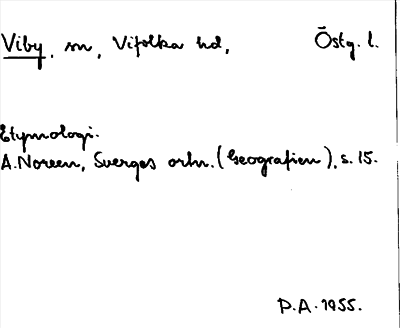 Viby, sn, Vifolka hd, Östg. l.
Etymologi.
A. Noreen, Sverges ortn. (Geografien), s. 15.
P.A. 1955.